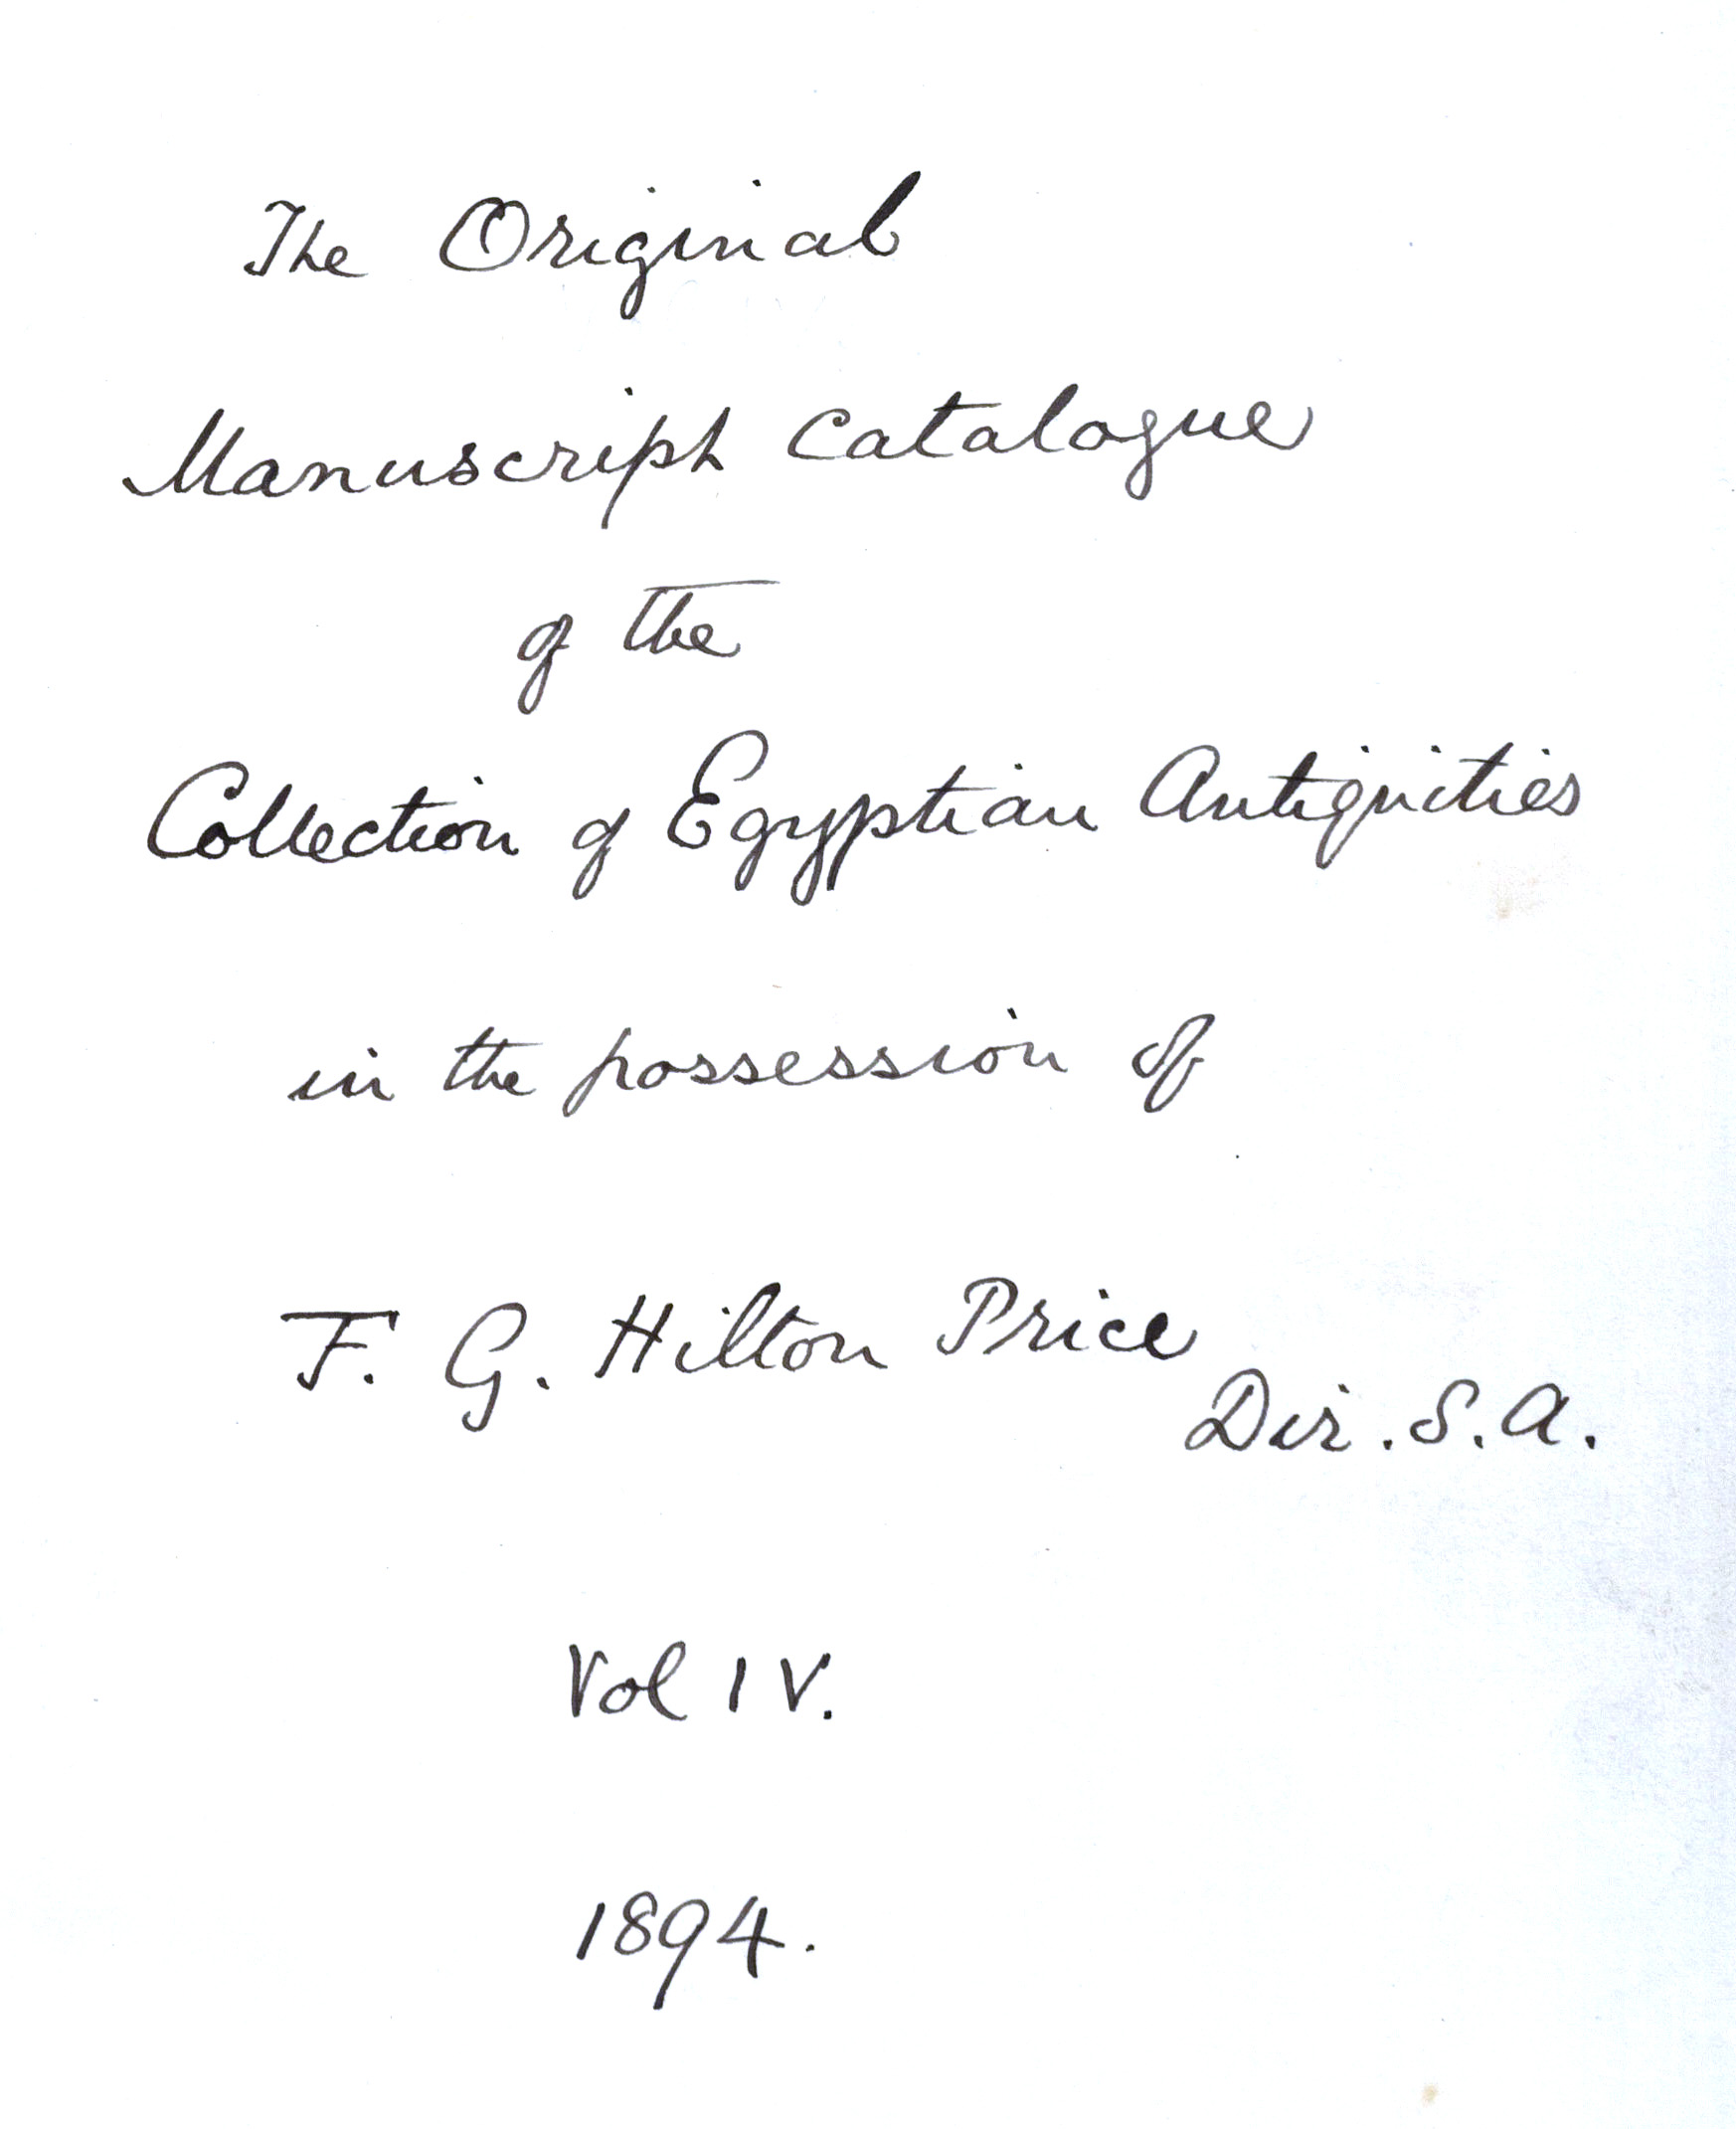 The Original
Manuscript Catalogue
of the
Collection of Egyptian Antiquities
in the possession of
F. G. Hilton Price
Dir. S. A.
Vol IV.
1894.